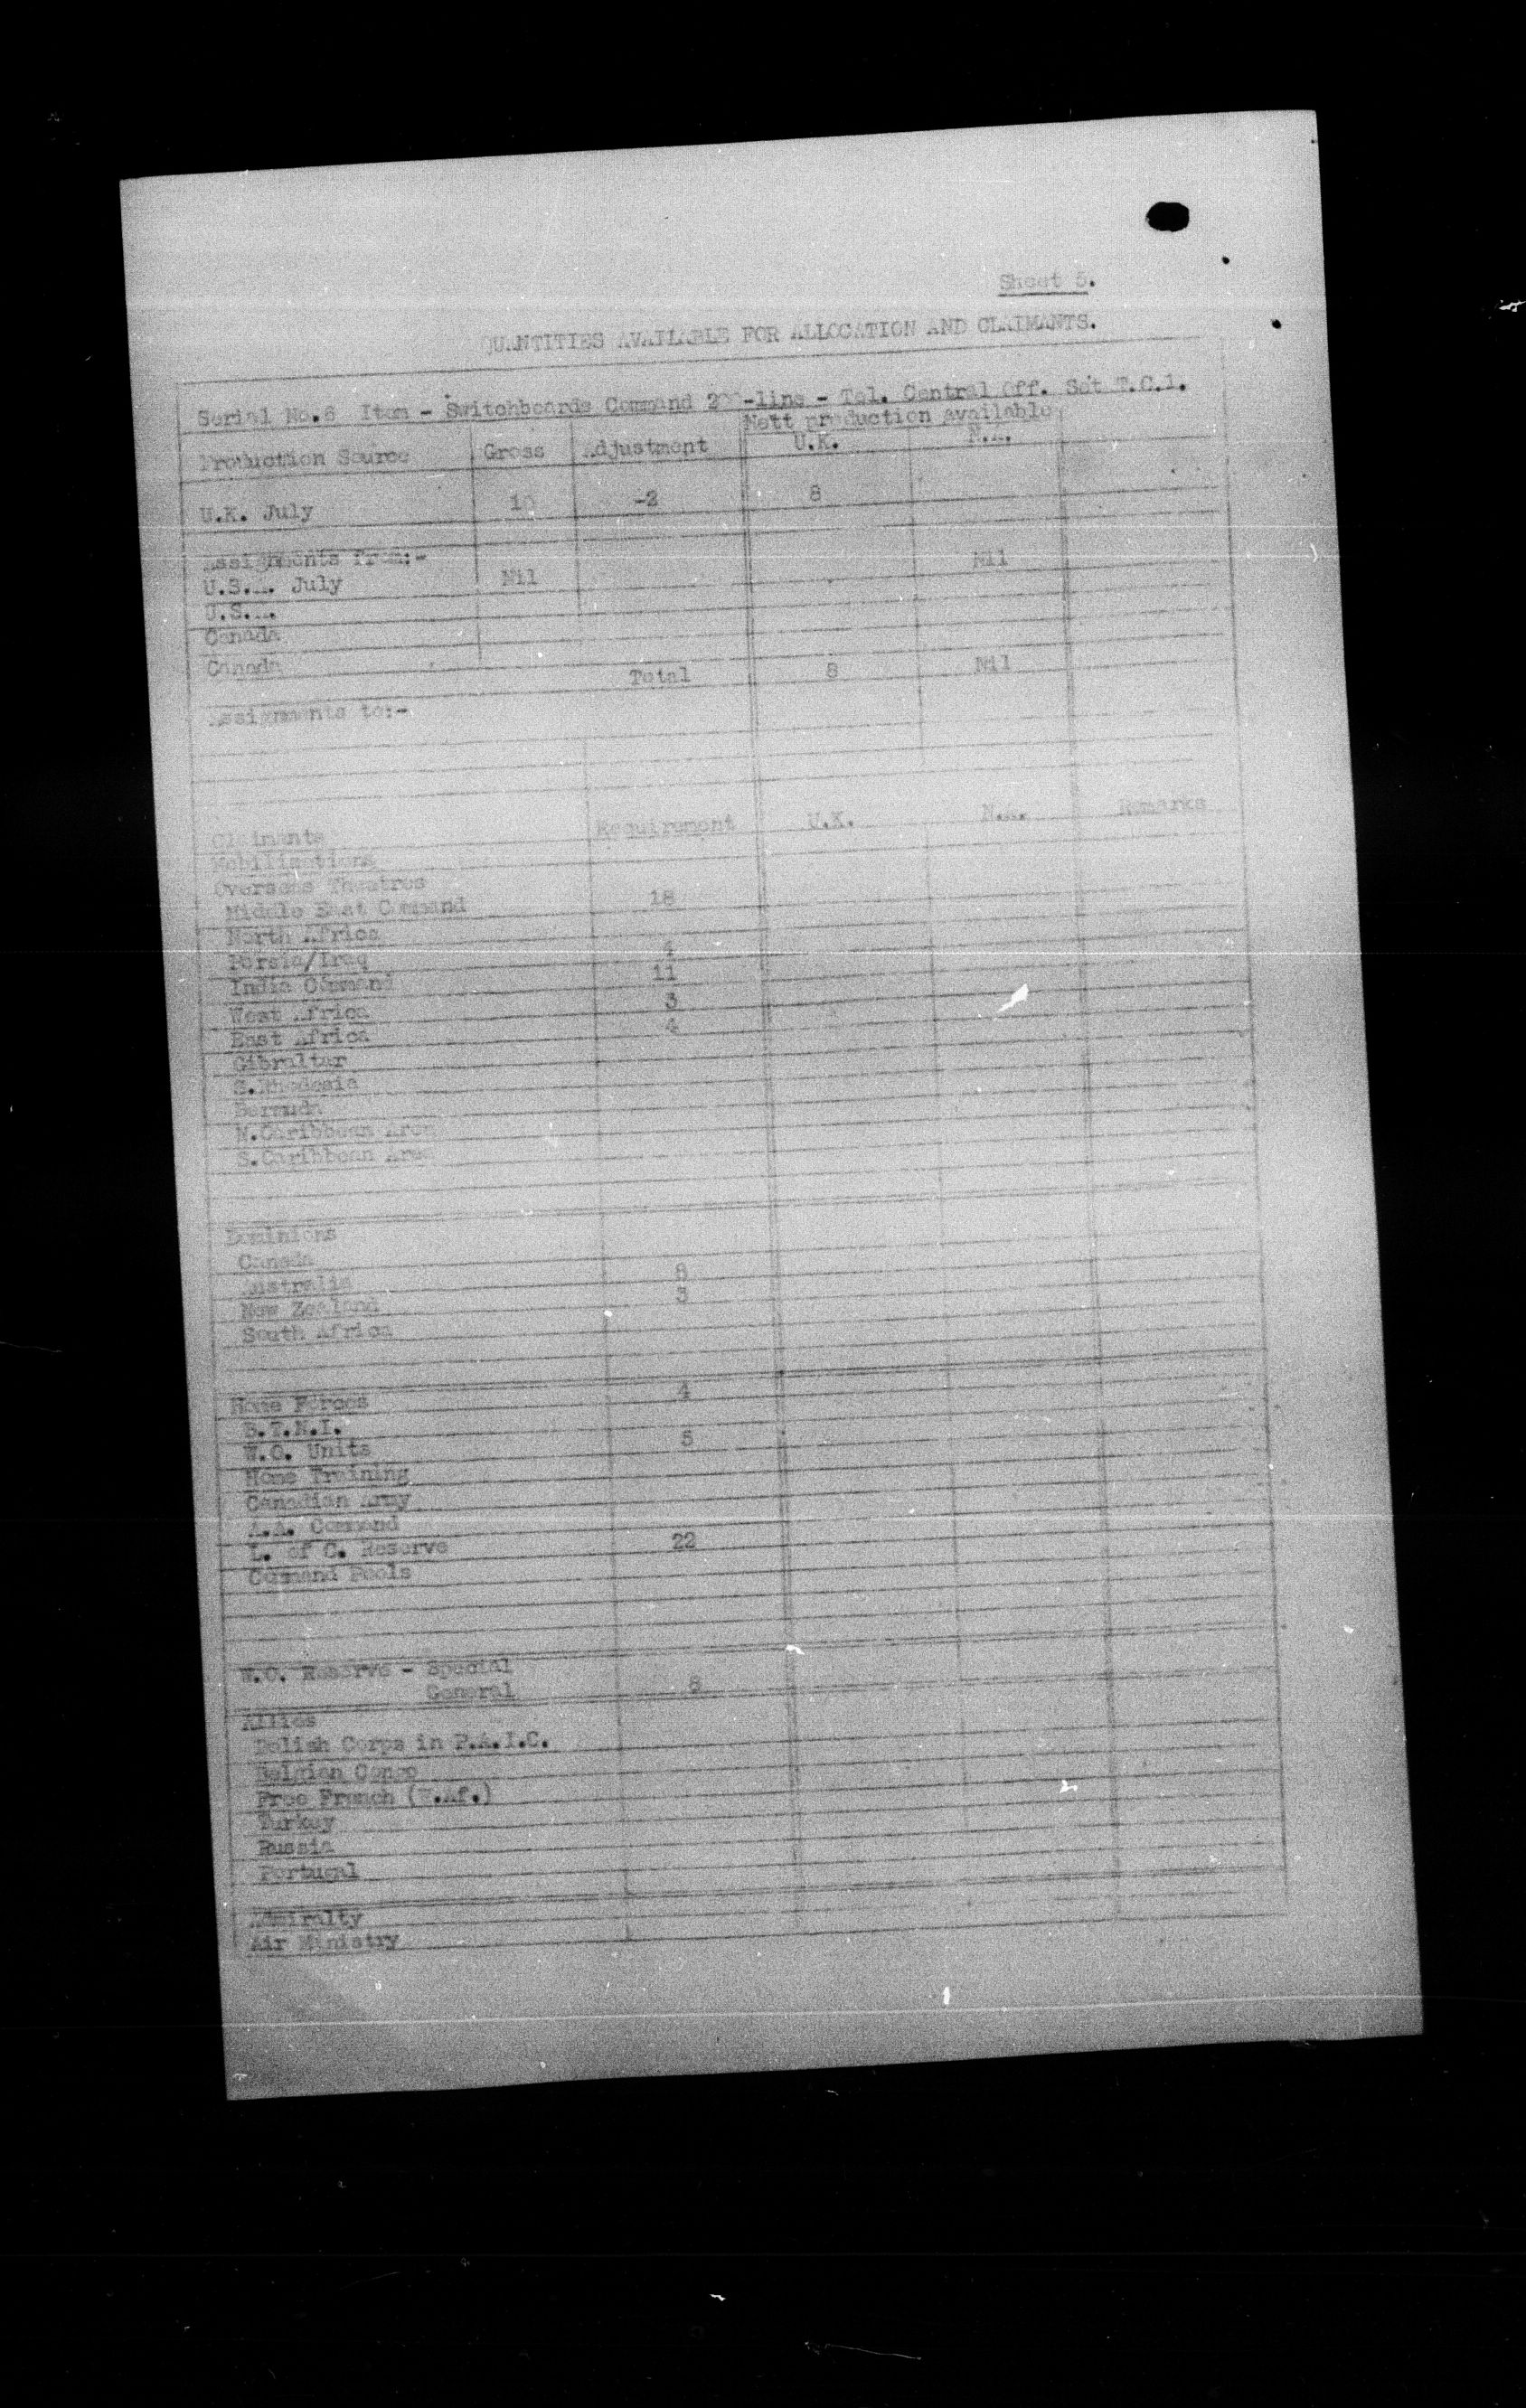 Sheet 5.
QUANTITIES AVAILABLE FOR ALLOCATION AND CLAIMANTS.
Serial No.6 Item - Switchboards Command 200-line - Tel. Central Off. Set T.C.1.
Nett production available
Production Source Gross Adjustment U.K. N.A.
U.K. July 10 -2 8
Assignments from:-
U.S.A. July Nil Nil
U.S.A.
Canada
Canada
Total 8 Nil
Assignments to:-
Claimants Requirement U.K. N.A. Remarks
Mobilisations
Overseas Theatres
Middle East Command 18
North Africa
Persia/Iraq 4
India Command 11
West Africa 3
East Africa 4
Gibraltar
S.Rhodesia
Bermuda
N.Caribbean Area
S.Caribbean Area
Dominions
Canada
Australia 8
New Zealand 3
South Africa
Home Forces 4
B.T.N.I.
W.O. Units 5
Home Training
Canadian Army
A.A. Command
L. of C. Reserve 22
Command Pools
W.O. Reserve - Special
General 8
Allies
Polish Corps in P.A.I.C.
Belgian Congo
Free French (E.Af.)
Turkey
Russia
Portugal
Admiralty
Air Ministry